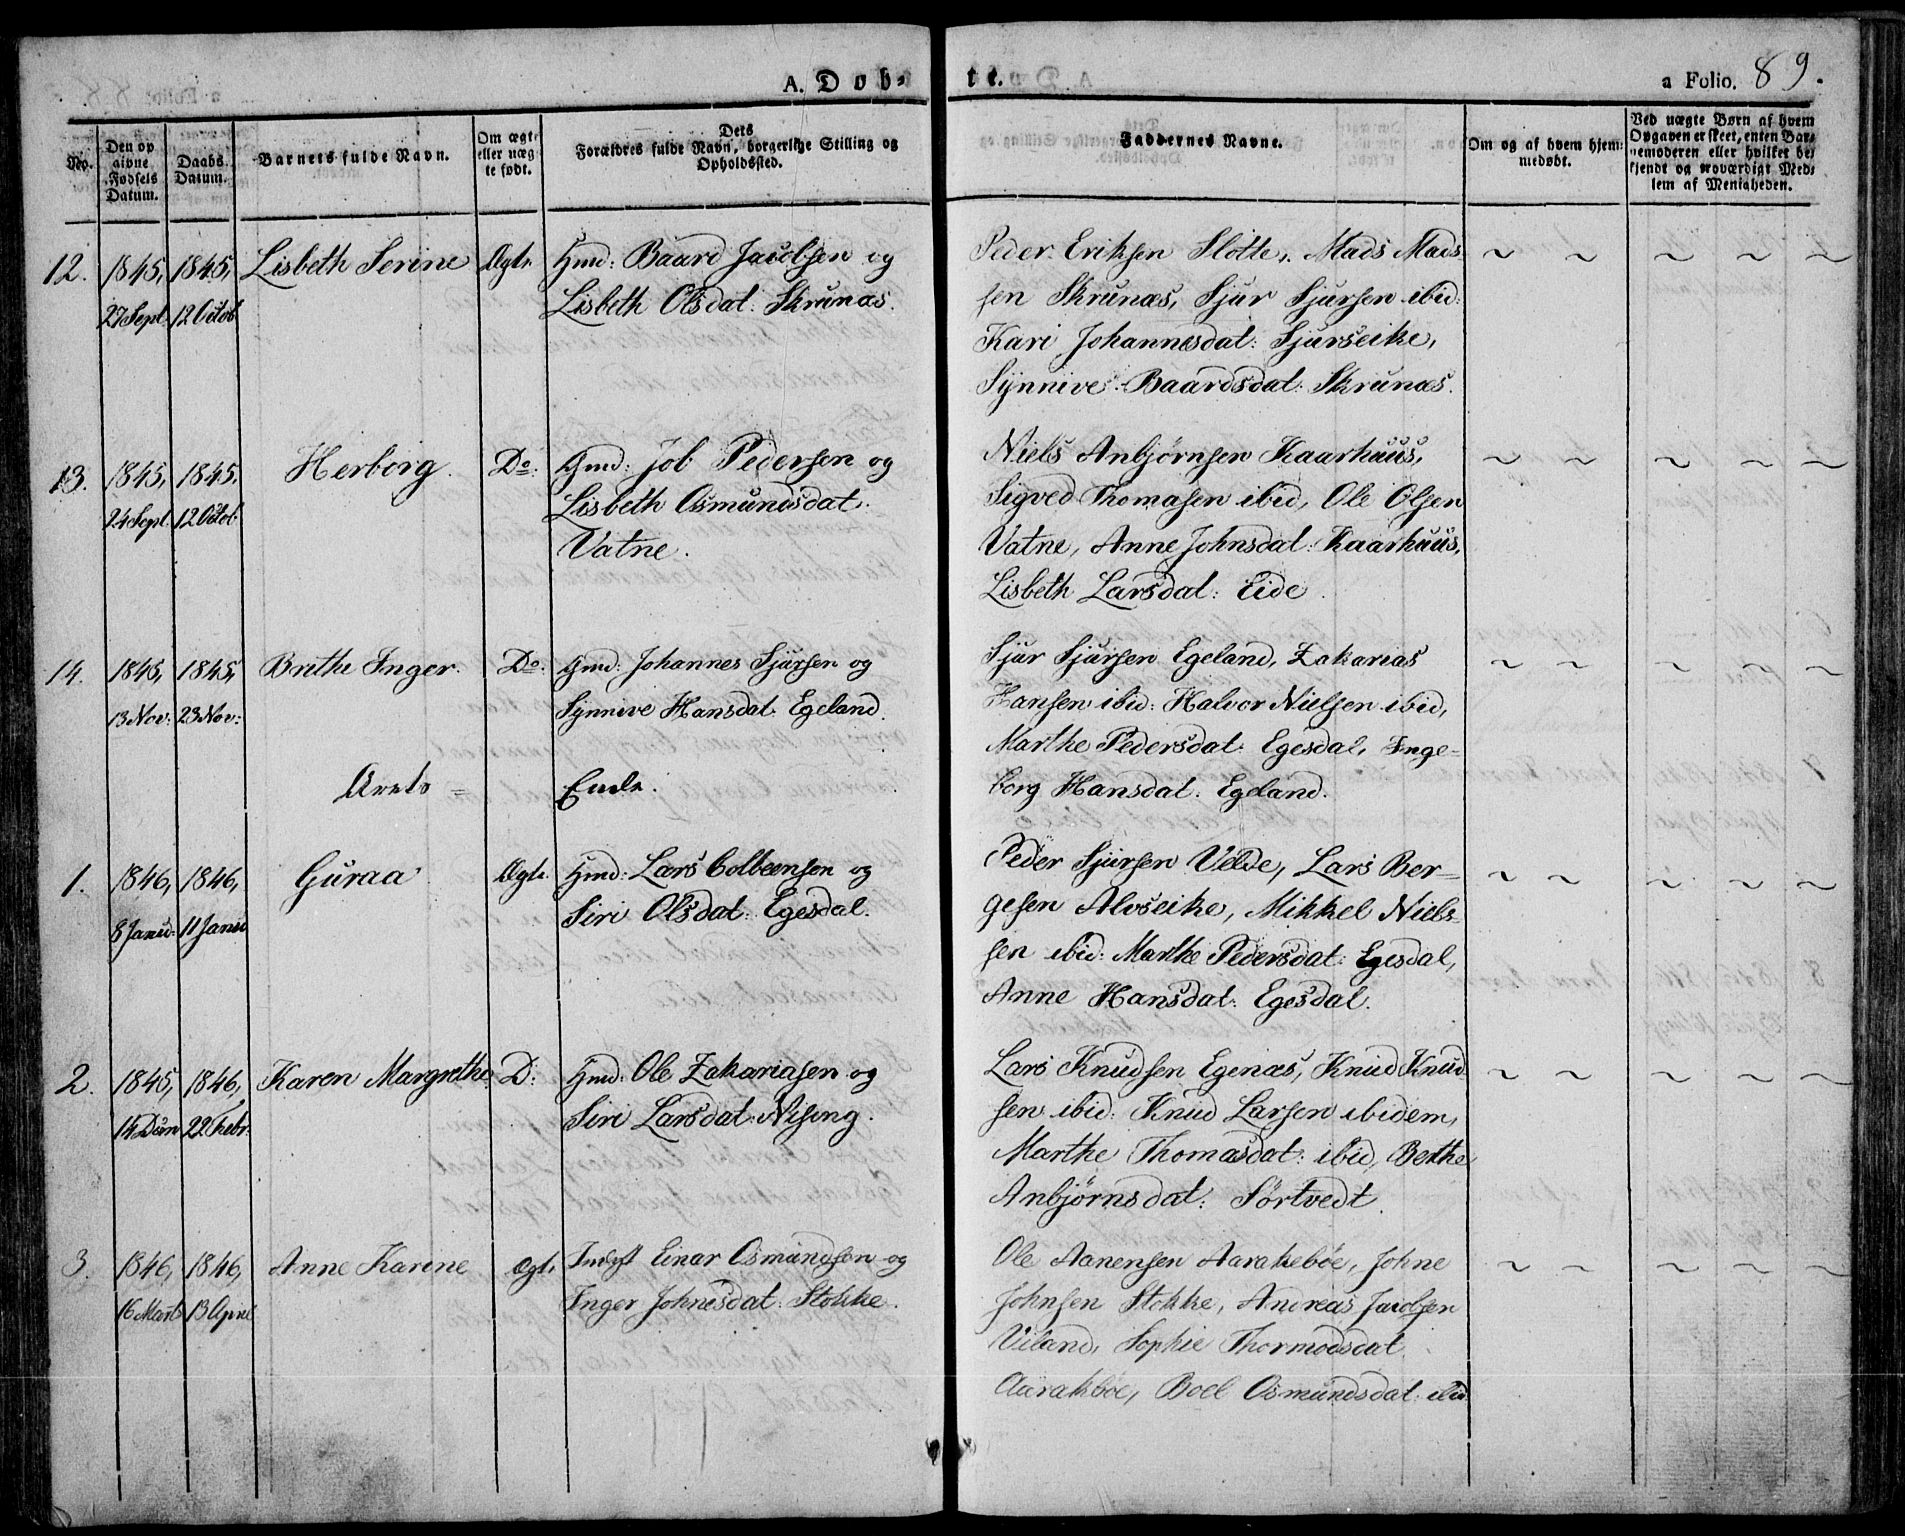 A. Døb-
te.
a Folio. 89.
No.
Den op
givne
Fødsels
Datum.
Daabs
Datum.
Barnets fulde Navn.
Om ægte
eller uæg
te født.
Dets
Forældres fulde Navn, borgerlige Stilling og
Opholdssted.
Faddernes Navne.
Om og af hvem hjem-
medøbt.
Ved uægte Børn af hvem
Opgaven er skeet, enten Bar-
nemoderen eller hvilket be
kjendt og troværdigt Med-
lem af Menigheden.
12. 1845, 1845, Lisbeth Serine Ægte Gmd: Baard Jacobsen og
27 Sept 12 Octob Lisbeth Olsdat: Skrunæs.
Peder Eriksen Slotte, Mads Mads
sen Skrunæs, Sjur Sjursen ibid:
Kari Johannesdat: Sjurseike,
Synnive Baardsdat: Skrunæs.
13. 1845, 1845. Herborg. Do: Gmd: Job Pedersen og
24 Sept. 12 Octob Lisbeth Osmundsdat:
Vatne.
Niels Anbjørnsen Kaarhuus,
Sigved Thomasen ibid, Ole Olsen
Vatne, Anne Johnsdal: Kaarhuus,
Lisbeth Larsdal: Eide.
14. 1845, 1845, Brithe Inger. Do: Gmd: Johannes Sjursen og
13 Nov: 23 Nov: Synnive Hansdat: Egeland.
Sjur Sjursen Egeland, Zakarias
Hansen ibid: Halvor Nielsen ibid,
Marthe Pedersdat: Egesdal, Inge-
borg Hansdat: Egeland.
Arets = Ende.
1. 1846, 1846, Guraa Ægte. Gmd: Lars Colbeensen og
8 Janu: 11 Janu Siri Olsdat: Egesdal.
Peder Sjursen Velde, Lars Ber-
gesen Alvseike, Mikkel Niels-
sen ibid: Marthe Pedersdat: Egesdal,
Anne Hansdat: Egesdal.
2. 1845, 1846, Karen Margrethe D: Gmd: Ole Zakariasen og
14 Dcm 22 Febr: Siri Larsdat: Nising.
Lars Knudsen Egenæs, Knud Knud
sen ibid: Knud Larsen ibidem,
Marthe Thomasdat: ibid, Berthe
Anbjørnsdat: Sørtvedt.
3. 1846, 1846, Anne Karine Ægt. Inderst Einar Osmundsen og
16 Marts 13 April Inger Johnesdat: Stokke.
Ole Aanensen Aarakebøe, Johne
Johnsen Stokke, Andreas Jacobsen
Viland, Sophie Thormodsdat
Aarakbøe, Boel Osmundsdat: ibid